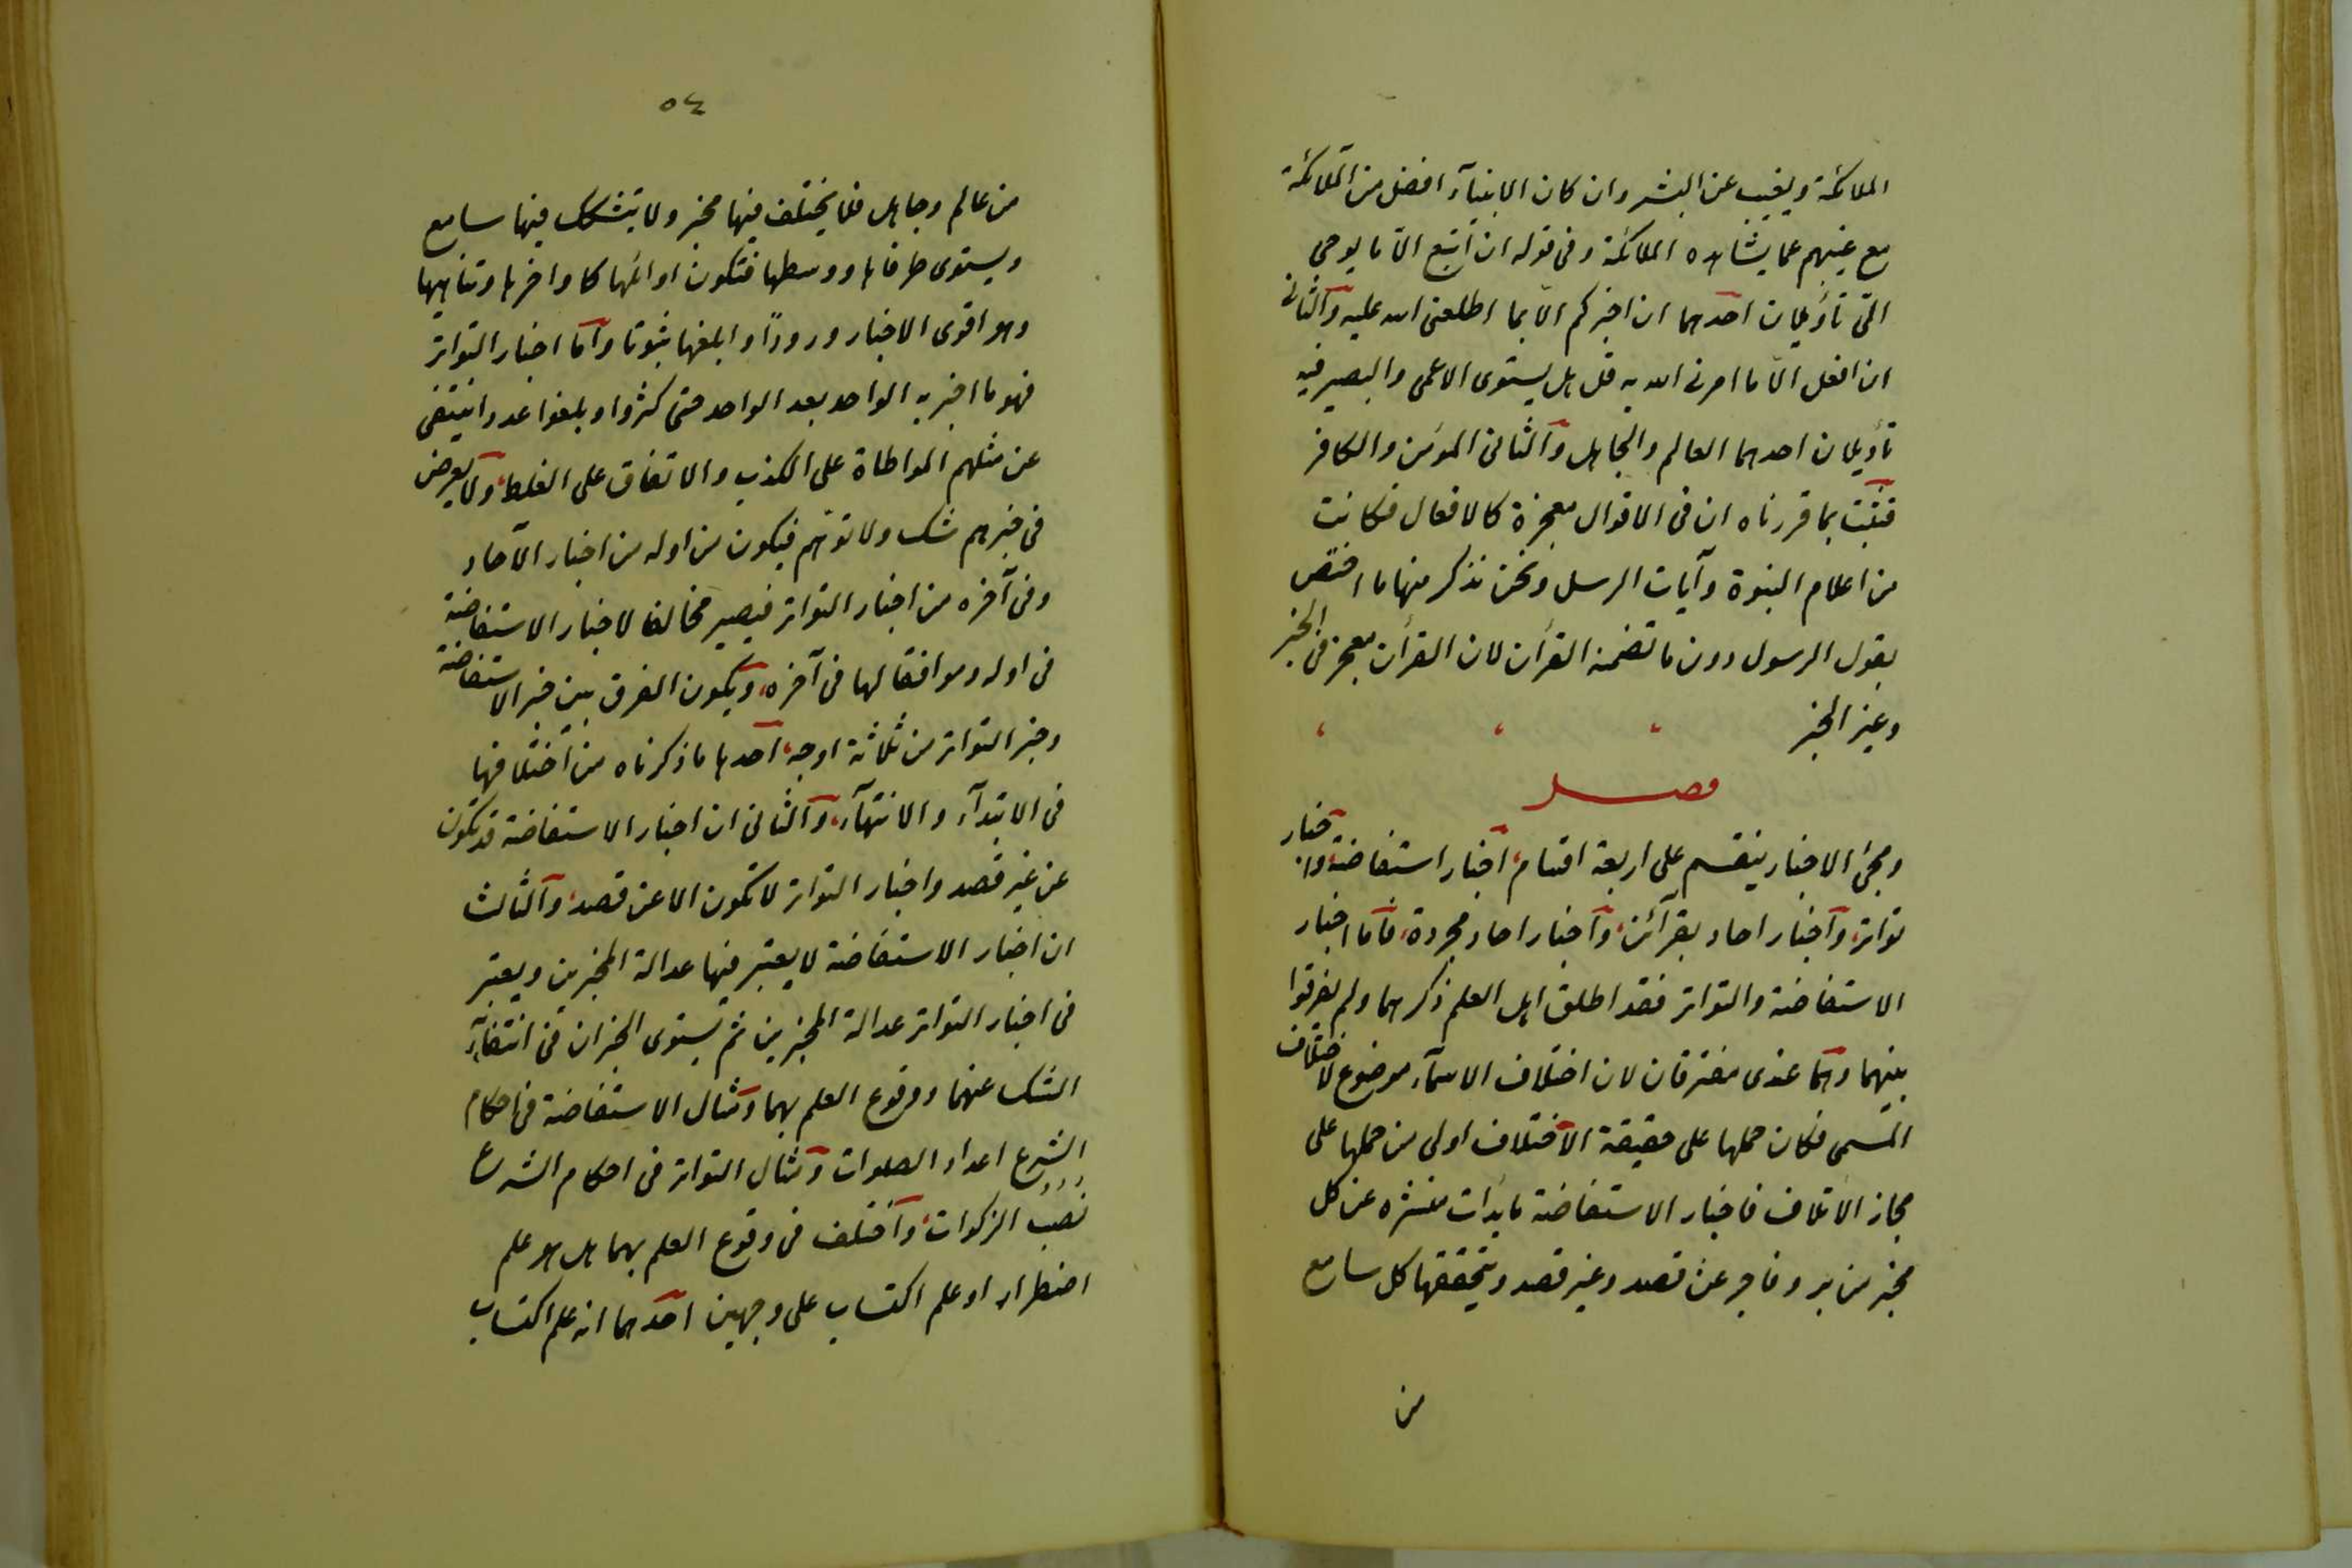 الملائكة ويغيب عن البشر وان كان الانبيآء افضل من الملائكة
مع غيبهم عما يشاهده الملائكة وفى قوله ان اتبع الّا ما يوحى
الىّ تأويلان احدهما ان اخبركم الّا بما اطلعنى الله عليه والثانى
ان افعل الّا ما امرنى الله به قل هل يستوى الاعمى والبصير فيه
تأويلان احدهما العالم والجاهل والثانى المؤمن والكافر
فثبت بما قررناه ان فى الاقوال معجزة كالافعال فكانت
من اعلام النبوة وآيات الرسل ونحن نذكر منها ما اختص
بقول الرسول دون ما تضمنه القرأن لان القرأن معجز فى الخبر
وغير الخبر
فصل
ومجئ الاخبار ينقسم على اربعة اقسام، اخبار استفاضة، واخبار
تواتر، واخبار احاد بقرآئن، واخبار احاد مجردة، فاما اخبار
الاستفاضة والتواتر فقد اطلق اهل العلم ذكرهما ولم يفرقوا
بينهما وهما عندى مفترقان لان اختلاف الاسمآء موضوع لاختلاف
المسمى فكان حملها على حقيقة الاختلاف اولى من حملها على
مجاز الائتلاف فاخبار الاستفاضة ما بدأت منتشره عن كل
مخبر من بر وفاجر عن قصد وغير قصد ويتحققها كل سامع
من
٥٤
من عالم وجاهل فلا يختلف فيها مخبر ولا يتشكك فيها سامع
ويستوى طرفاها ووسطها فتكون اوائلها كاواخرها وتناهيها
وهو اقوى الاخبار ورودًا وابلغها ثبوتا واما اخبار التواتر
فهو ما اخبر به الواحد بعد الواحد حتى كثروا وبلغوا عددا ينتفى
عن مثلهم المواطاة على الكذب والاتفاق على الغلط، ولا يعرض
فى خبرهم شك ولا توهم فيكون من اوله من اخبار الآحاد
وفى آخره من اخبار التواتر فيصير مخالفا لاخبار الاستفاضة
فى اوله وموافقا لها فى آخره، ويكون الفرق بين خبر الاستفاضة
وخبر التواتر من ثلاثة اوجه، احدها ما ذكرناه من اختلافها
فى الابتدآء والانتهآء، والثانى ان اخبار الاستفاضة قد تكون
عن غير قصد واخبار التواتر لا تكون الا عن قصد، والثالث
ان اخبار الاستفاضة لا يعتبر فيها عدالة المخبرين ويعتبر
فى اخبار التواتر عدالة المخبرين ثم يستوى الخبران فى انتفآء
الشك عنهما ووقوع العلم بهما ومثال الاستفاضة فى احكام
الشرع اعداد الصلوات ومثال التواتر فى احكام الشرع
نُصُب الزكوات، واختلف فى وقوع العلم بهما هل هو علم
اضطرار او علم اكتساب على وجهين احدهما انه علم اكتساب